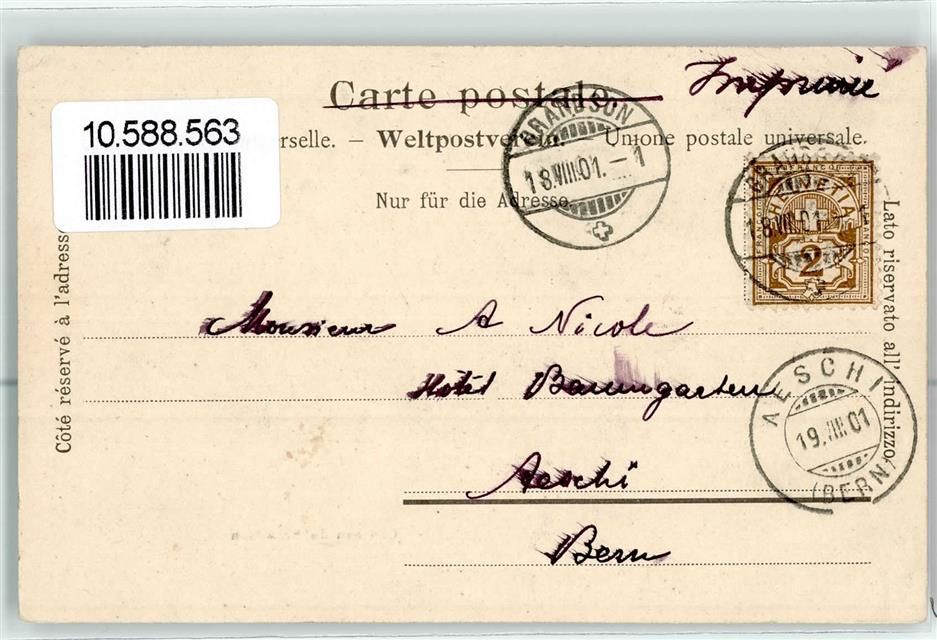 Carte postale. Imprimé
10.588.563
rselle. — Weltpostverein. Unione postale universale.
Nur für die Adresse.
GRANDSON
18.VIII.01.-1
HELVETIA
2
18.VIII.01
Côté réservé à l'adresse
Lato riservato all' indirizzo.
Monsieur A Nicole
Hotel Baumgarten
Aeschi
Bern
AESCHI
19.VIII.01
(BERN)